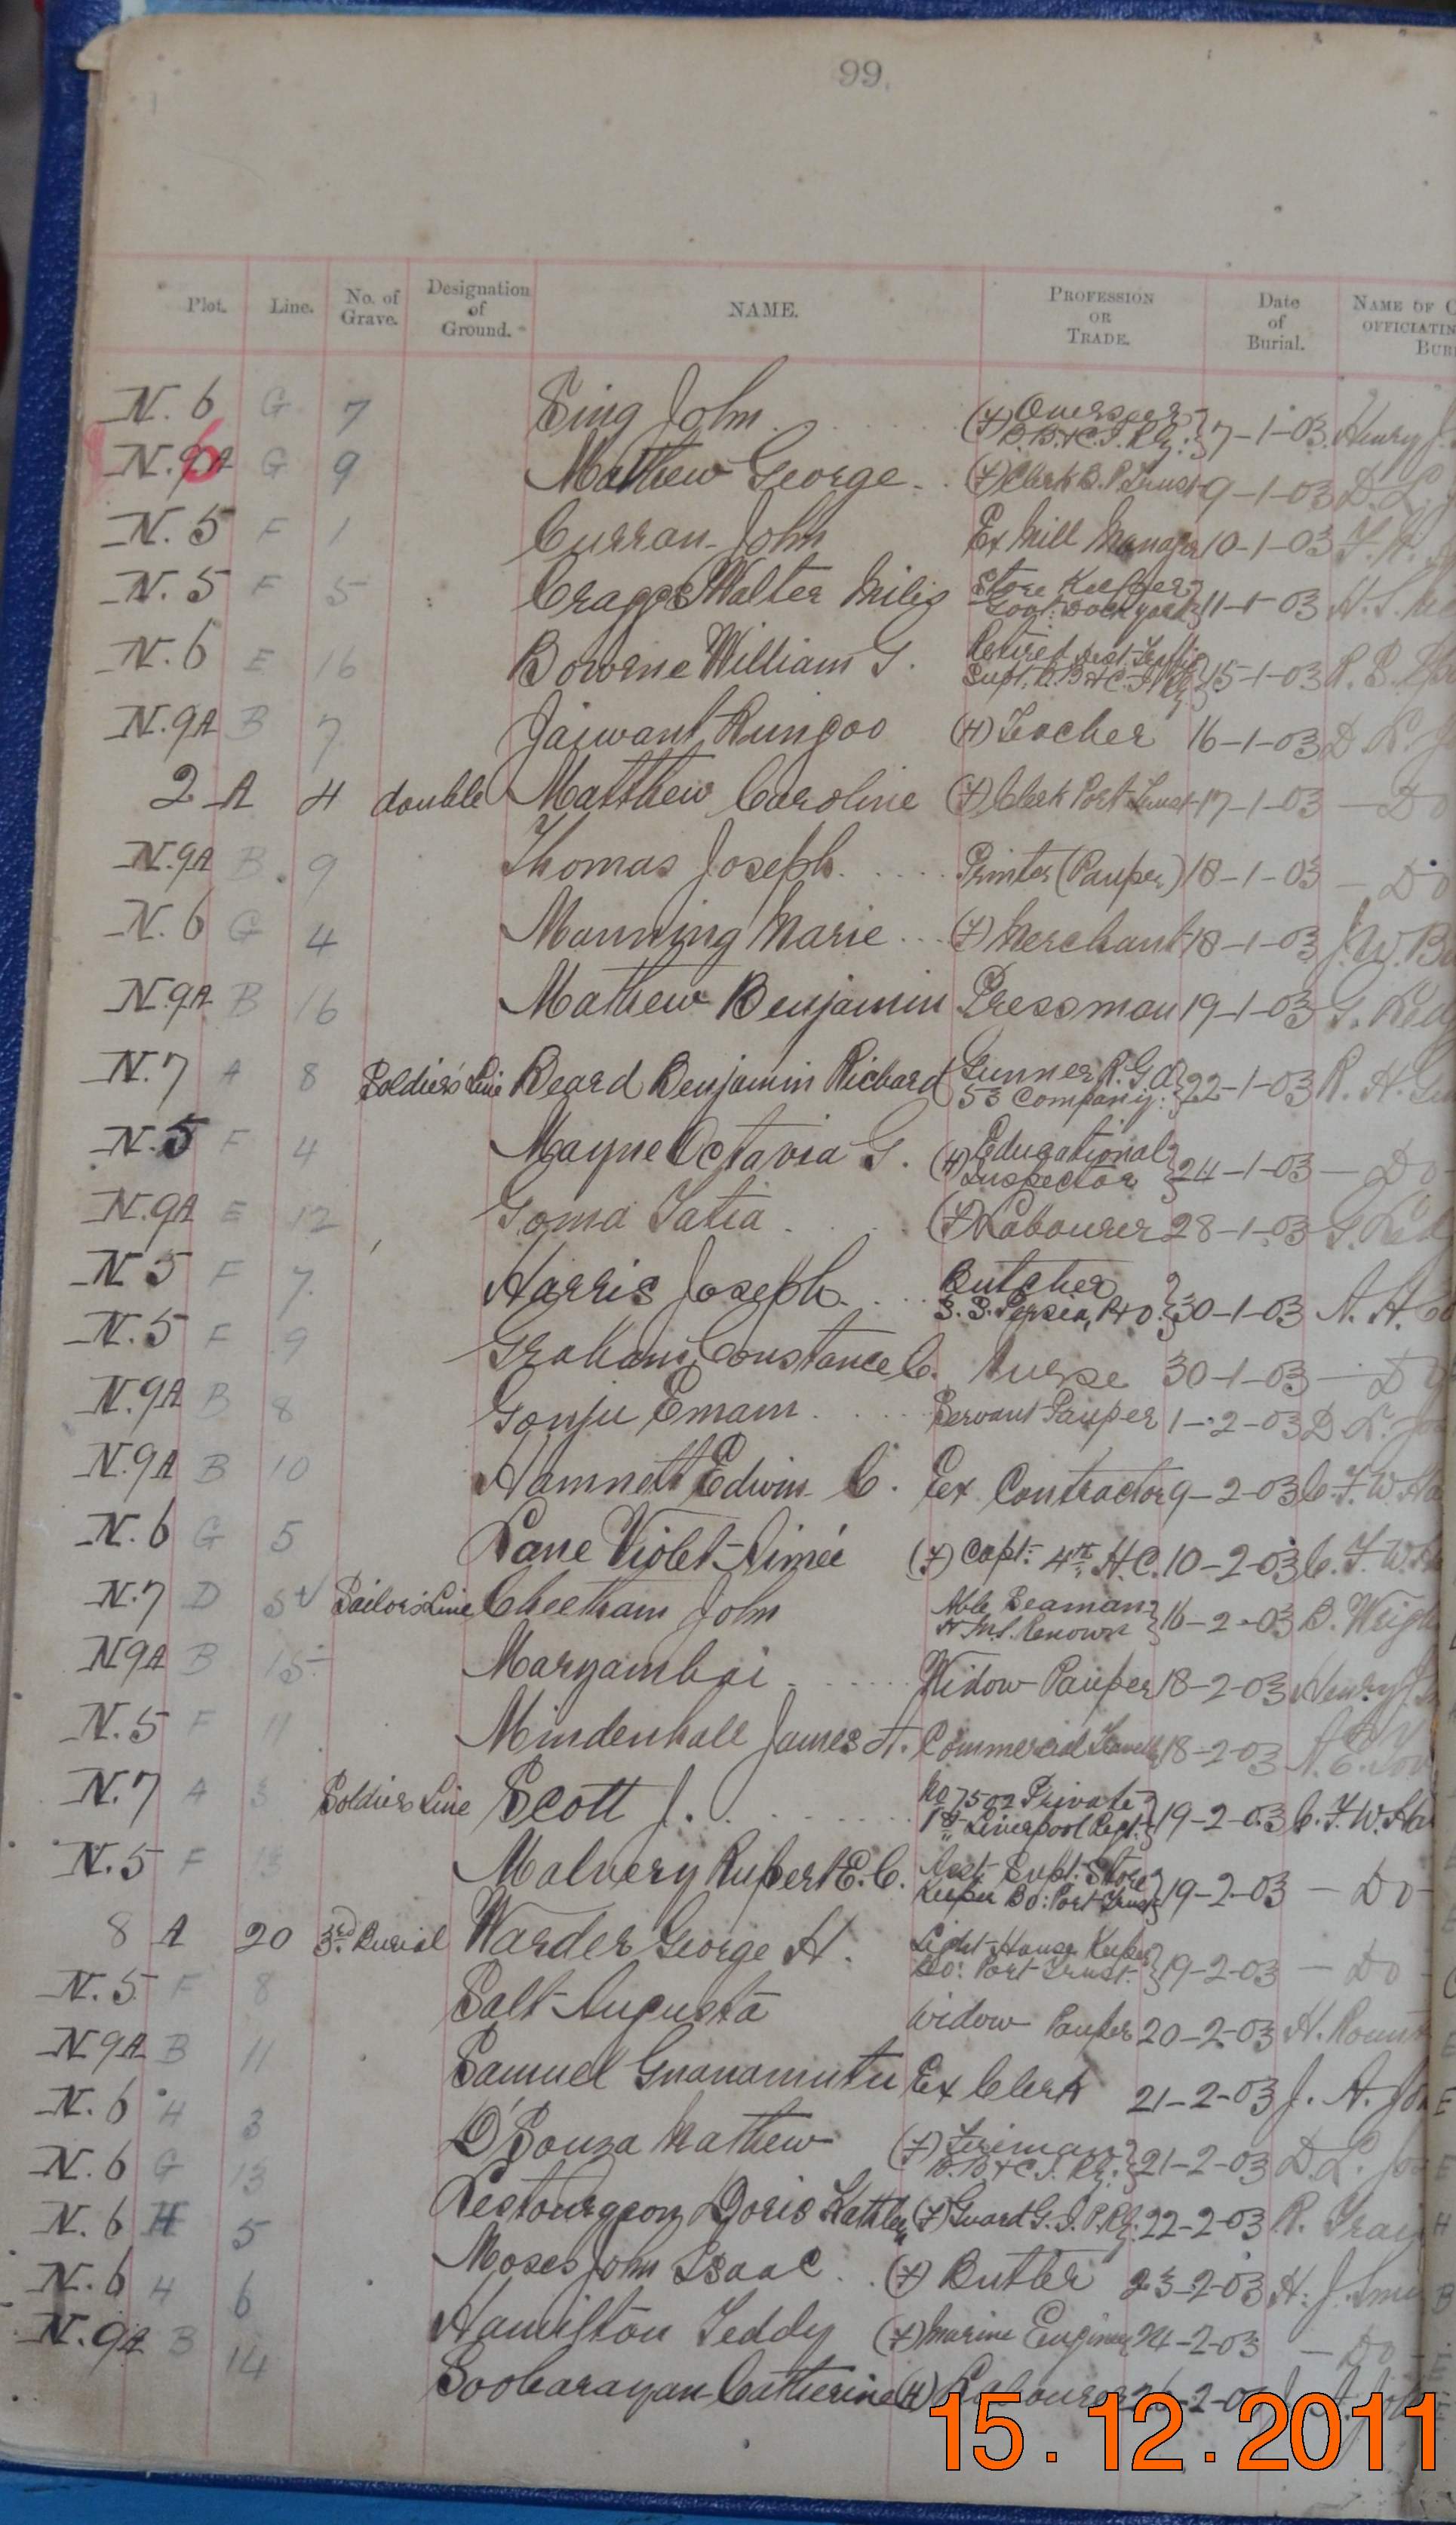 99.
Plot. Line. No. of Grave. Designation of Ground. NAME. PROFESSION OR TRADE. Date of Burial. NAME OF C OFFICIATIN BURI
N. 6 G 7 Sing John (F) Overseer B.B.&C.I. Rly. 7-1-03 Henry J.
N. 6 G 9 Mathew George (F) Clerk B.P. Trust 9-1-03 D. L. J
N. 5 F 1 Curran John Ex Mill Manager 10-1-03
N. 5 F 5 Craggs Walter Milis Store Keeper Govt: Dockyard 11-1-03 H. S.
N. 6 E 16 Bowrne William G. Retired Asst. Traffic Supt. B.B.&C.I. Rly 15-1-03 R. S.
N.9A B 7 Jaiwant Rungoo (H) Teacher 16-1-03 D. L. J
2 A 4 double Matthew Caroline (F) Clerk Port Trust 17-1-03 — Do
N.9A B 9 Thomas Joseph Printer (Pauper) 18-1-03 — Do
N. 6 G 4 Manning Marie (F) Merchant 18-1-03 J. W. Ba
N.9A B 16 Mathew Benjamin Pressman 19-1-03 G. Led
N.7 A 8 Soldiers' Line Beard Benjamin Richard Gunner R.G.A 53 Company. 22-1-03 R. H.
N.5 F 4 Mayne Octavia G. (H) Educational Inspector 24-1-03 — Do
N.9A E 12 Goma Tatia (F) Labourer 28-1-03 G. Led
N 5 F 7 Harris Joseph Butcher S.S. Persia, P&O. 30-1-03 A. H.
N. 5 F 9 Graham Constance C. Nurse 30-1-03 — Do
N.9A B 8 Gonju Emam Servant Pauper 1-2-03 D. L. Jo
N.9A B 10 Hamnett Edwin C. Ex Contractor 9-2-03 C. F. W. Ha
N. 6 G 5 Lane Violet Aimée (F) Capt: 4th H.C. 10-2-03 C. F. W. H
N.7 D Sailors' Line Cheetham John Able Seaman H.M.S. Renown 16-2-03 B. Wrigh
N9A B 15 Maryambai Widow Pauper 18-2-03 Henry J.
N. 5 F 11 Mindenhall James H. Commercial Traveller 18-2-03
N.7 A 3 Soldiers Line Scott J. No 7502 Private 1st Liverpool Regt. 19-2-03 C. F. W. Ha
N.5 F 13 Malvery Rupert E. C. Asst Supt: Store Keeper Bo: Port Trust 19-2-03 — Do
8 A 20 3rd Burial Warder George H. Light House Keeper Bo: Port Trust. 19-2-03 — Do
N. 5 F 8 Salt Augusta Widow Pauper 20-2-03 H. Rount
N9A B 11 Samuel Gnanamutu Ex Clerk 21-2-03 J. A. Jo
N. 6 H 3 D'Souza Mathew (F) Fireman B.B.&C.I. Rly. 21-2-03 D. L. Jo
N. 6 G 13 Lestourgeon Doris Kathleen (F) Guard G.I.P. Rly. 22-2-03 R.
N. 6 H 5 Moses John Isaac (F) Butler 23-2-03 H. J. Smi
N. 6 H 6 Hamilton Teddy (F) Marine Engineer 24-2-03 — Do
N.9A B 14 Soobarayan Catherine (H) Labourer
15.12.2011